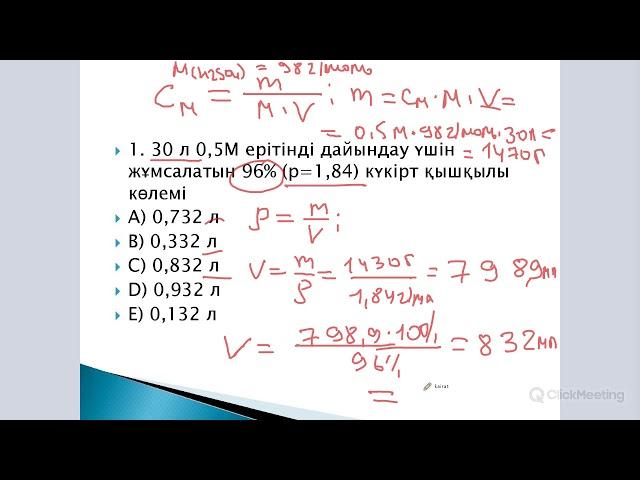 M(H2SO4) = 98г/моль
Cм = m / M·V ; m = Cм·M·V =
= 0,5М·98г/моль·30л =
= 1470г
1. 30 л 0,5М ерітінді дайындау үшін
жұмсалатын 96% (p=1,84) күкірт қышқылы
көлемі
A) 0,732 л
B) 0,332 л
C) 0,832 л
D) 0,932 л
E) 0,132 л
ρ = m / V ;
V = m / ρ = 1430г / 1,84г/мл = 798,9мл
V = 798,9·100% / 96% = 832мл
=
kairat
ClickMeeting